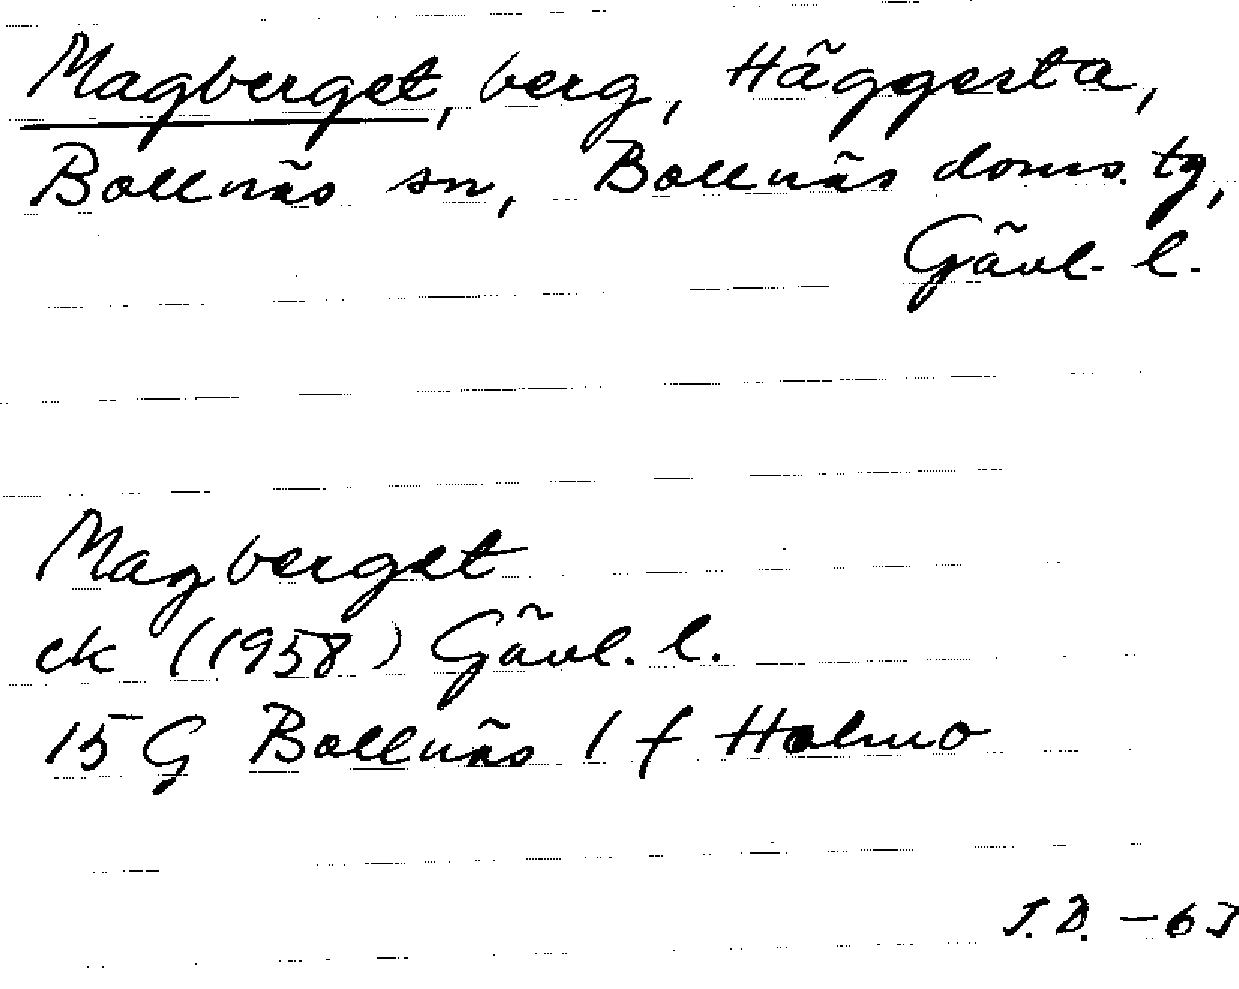 Magberget, berg, Häggesta,
Bollnäs sn, Bollnäs doms. tg,
Gävl. l.
Magberget
ek (1958) Gävl. l.
15 G Bollnäs 1 f Holmo
J.D. -63